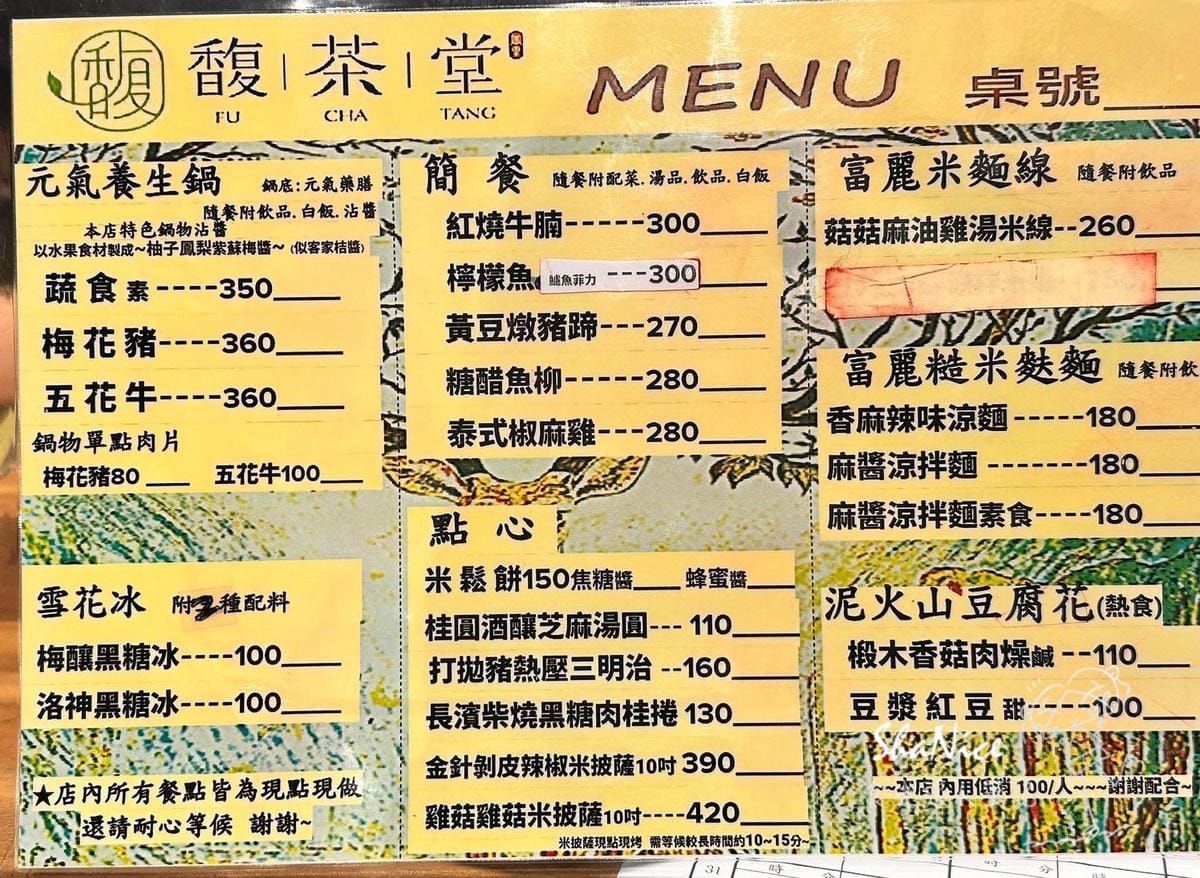 馥
馥 茶 堂
FU CHA TANG
MENU 桌號____
元氣養生鍋 鍋底:元氣藥膳
隨餐附飲品.白飯.沾醬
本店特色鍋物沾醬
以水果食材製成~柚子鳳梨紫蘇梅醬~ (似客家桔醬)
蔬食素----350____
梅花豬----360____
五花牛----360____
鍋物單點肉片
梅花豬80 ___ 五花牛100___
雪花冰 附2種配料
梅釀黑糖冰----100____
洛神黑糖冰----100____
★店內所有餐點皆為現點現做
還請耐心等候 謝謝~
簡 餐 隨餐附配菜.湯品.飲品.白飯
紅燒牛腩-----300____
檸檬魚 鱸魚菲力 ---300____
黃豆燉豬蹄---270____
糖醋魚柳-----280____
泰式椒麻雞---280____
點 心
米鬆餅150焦糖醬___ 蜂蜜醬___
桂圓酒釀芝麻湯圓--- 110____
打拋豬熱壓三明治 --160____
長濱柴燒黑糖肉桂捲 130____
金針剝皮辣椒米披薩10吋 390____
雞菇雞菇米披薩10吋----420____
米披薩現點現烤 需等候較長時間約10~15分~
富麗米麵線 隨餐附飲品
菇菇麻油雞湯米線--260____
富麗糙米麩麵 隨餐附飲
香麻辣味涼麵-----180____
麻醬涼拌麵 -------180____
麻醬涼拌麵素食----180____
泥火山豆腐花(熱食)
椴木香菇肉燥鹹 --110____
豆漿紅豆甜----100____
~~本店 內用低消 100/人~~~謝謝配合~
ShaNice
31 時 分 時 分
時